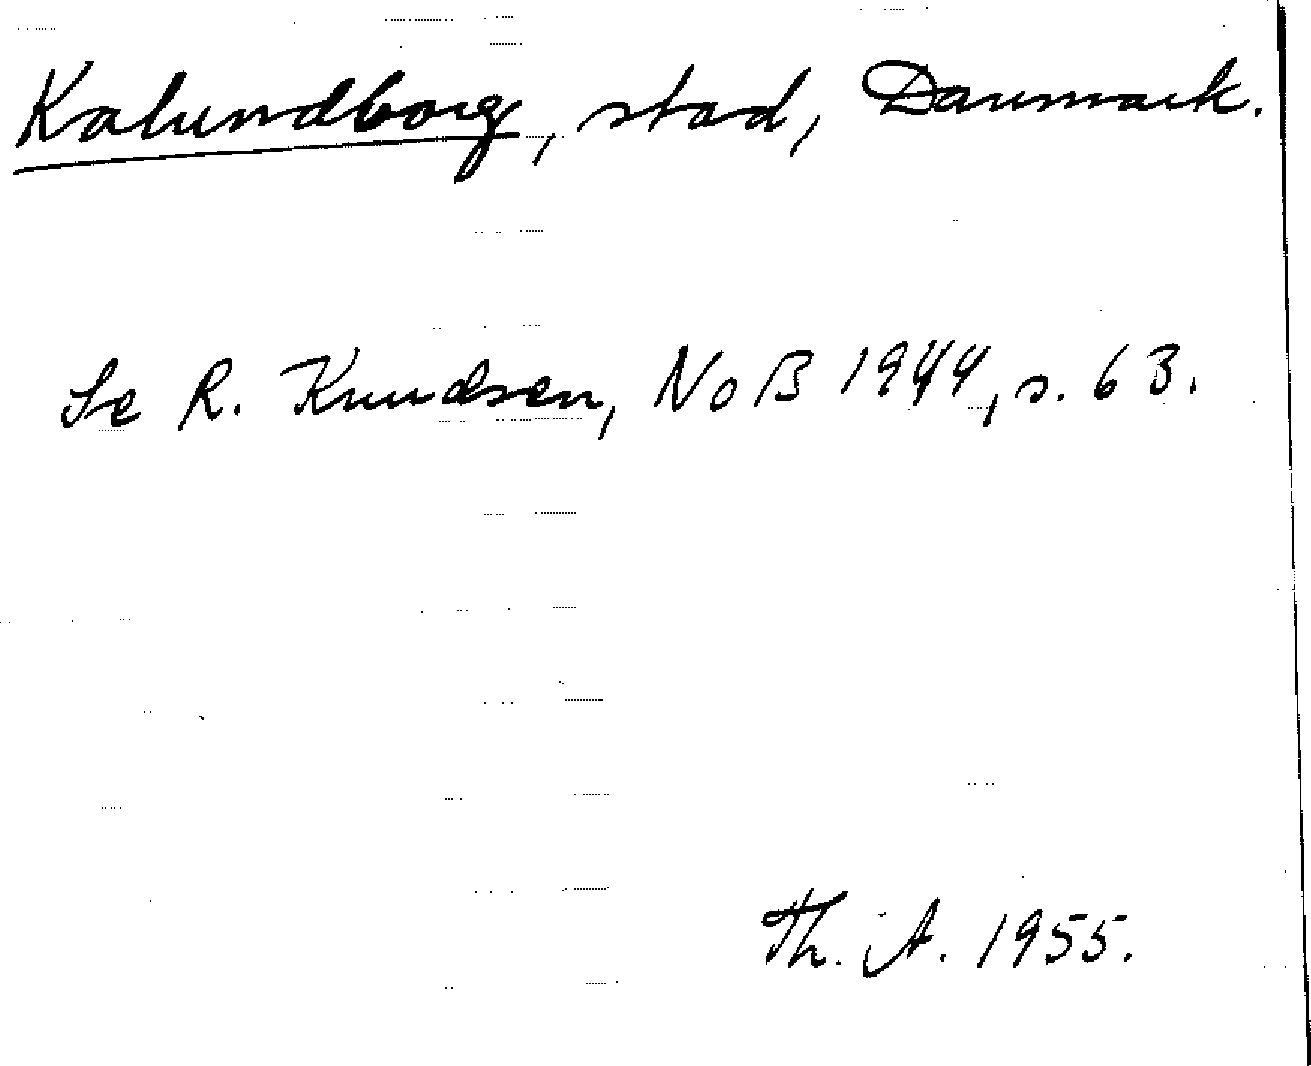 Kalundborg, stad, Danmark.
Se R. Knudsen, NoB 1944, s. 63.
Th. A. 1955.